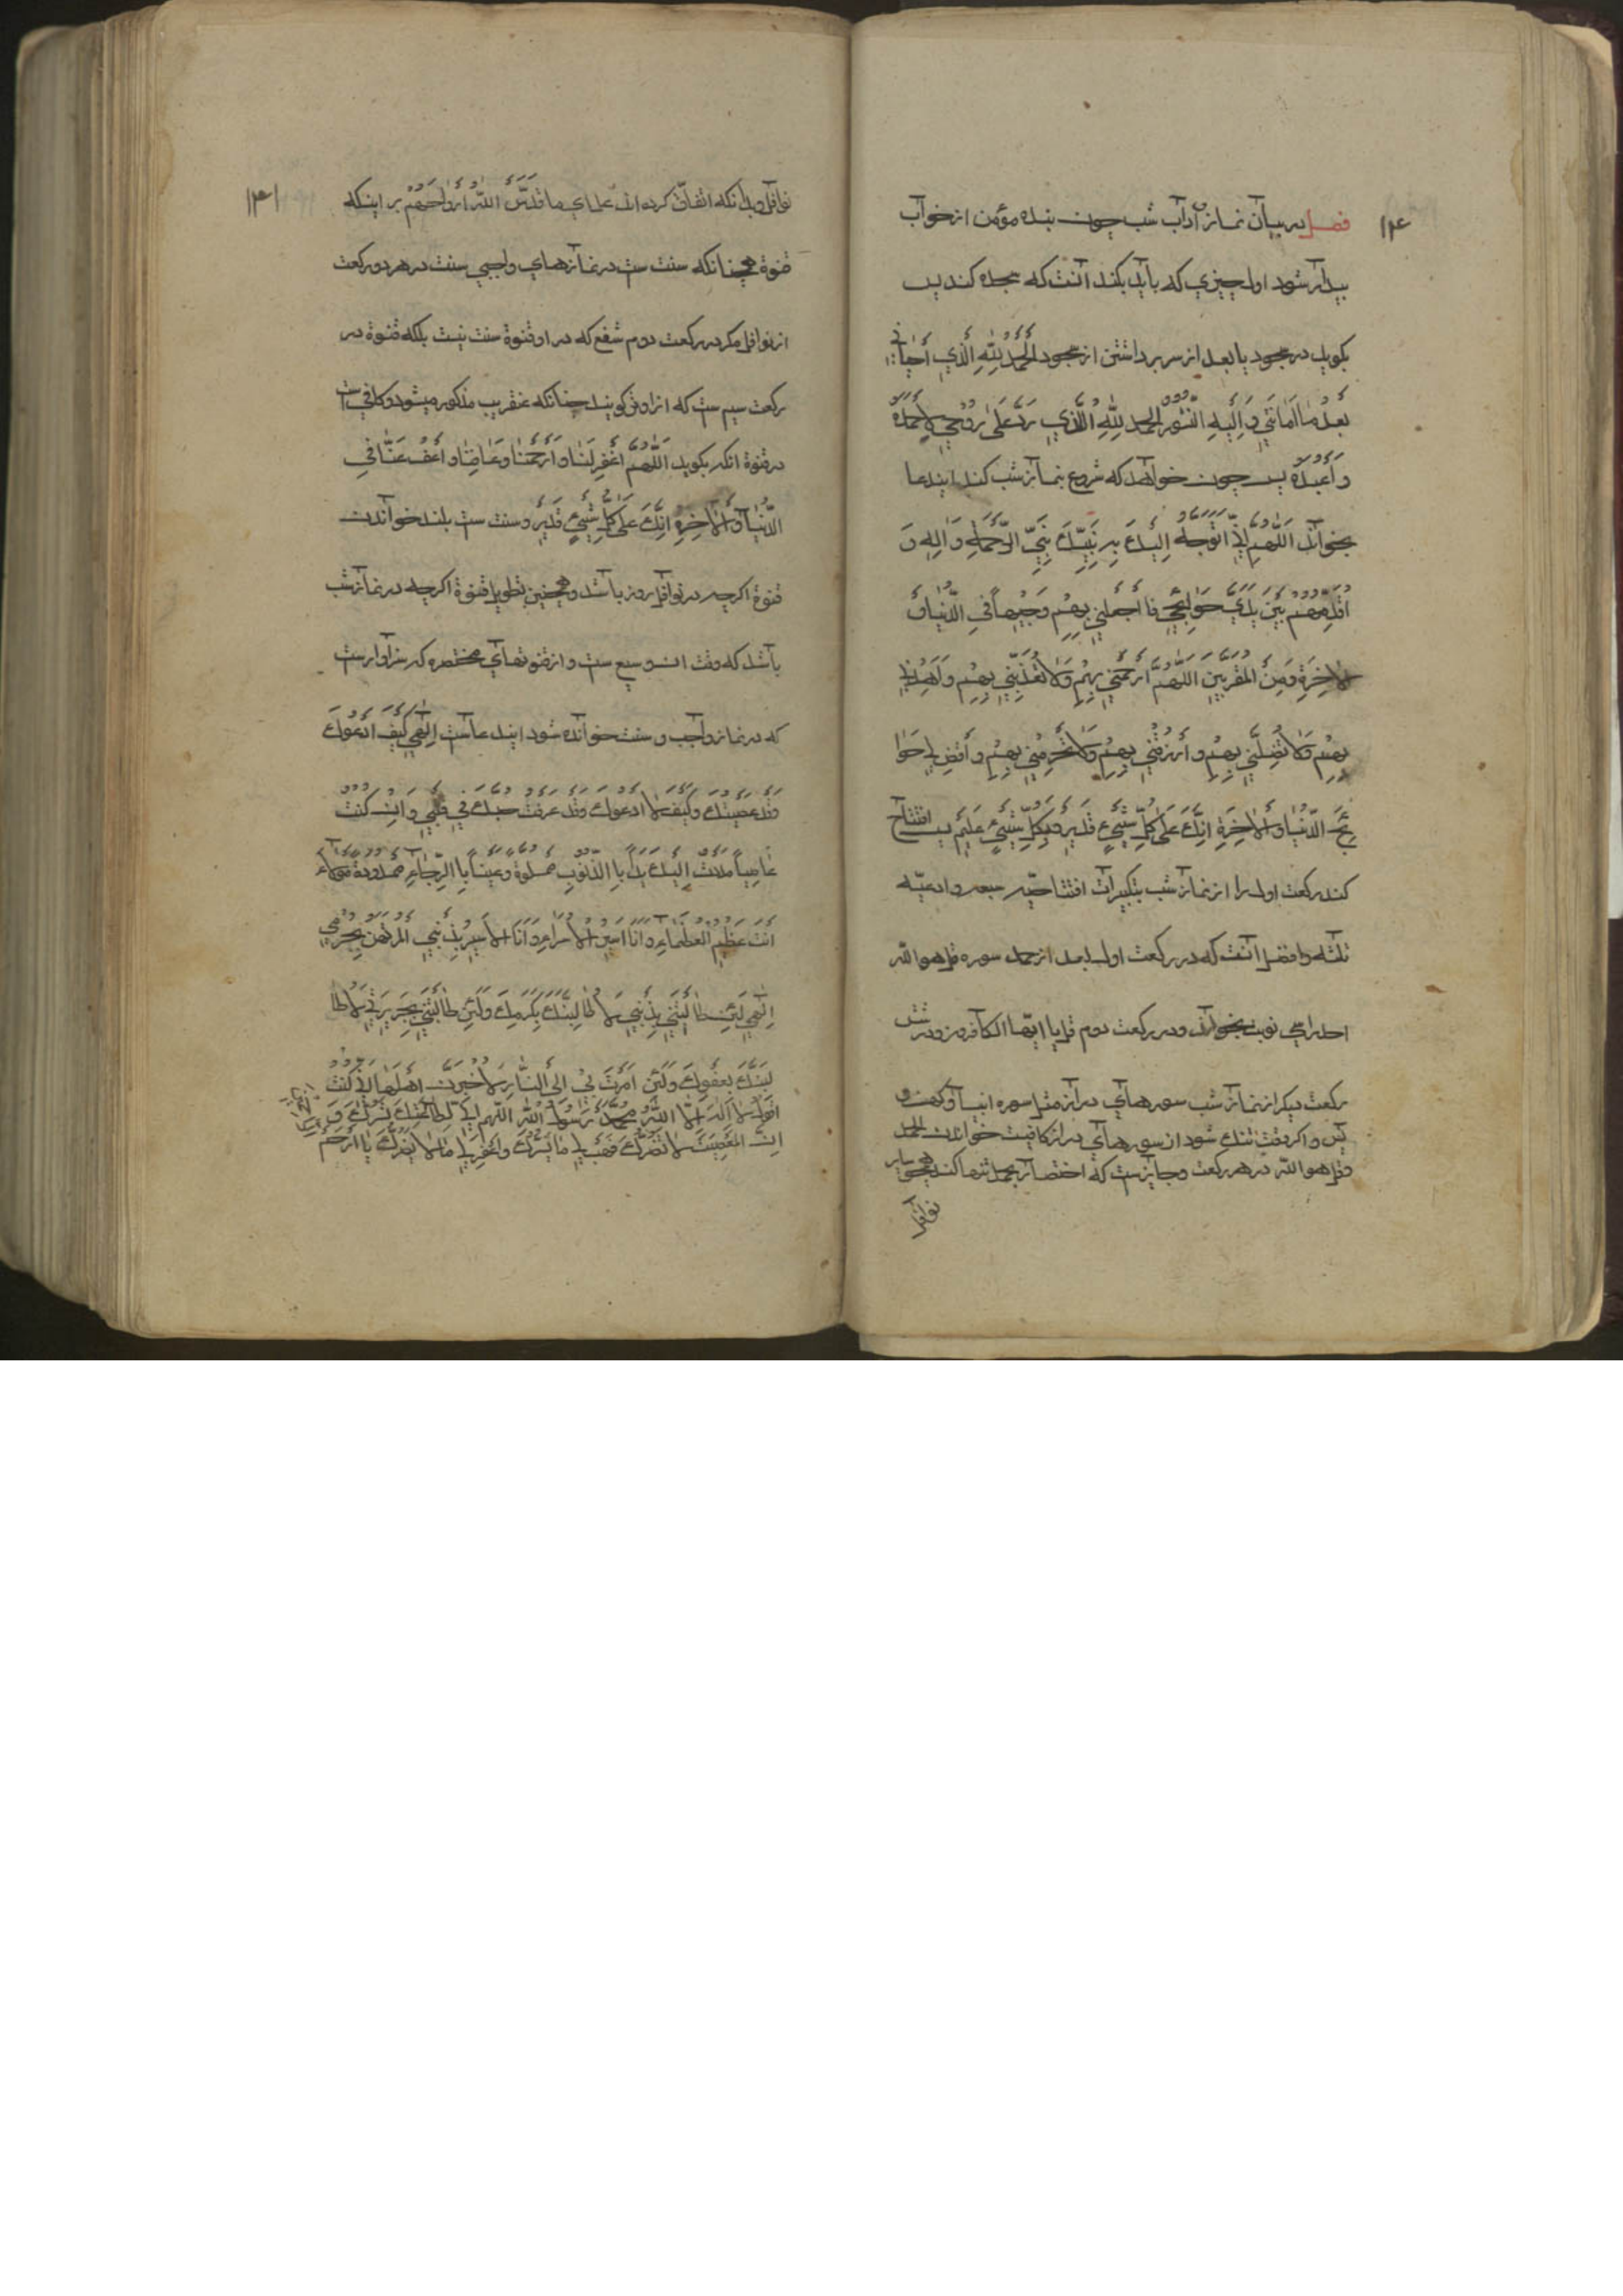 ۱۴۰
فصل در بیان نماز و آداب شب چون بنده مؤمن از خواب
بیدار شود اول چیزی که باید بکند آنست که سجده کند پس
بکوید در سجود یا بعد از سر برداشتن از سجود اَلْحَمْدُ لِلّٰهِ الَّذِي أَحْيَانِي
بَعْدَ مَا أَمَاتَنِي وَإِلَيْهِ النُّشُورُ الحمد لِلّٰهِ الَّذِي رَدَّ عَلَيَّ رُوحِي لِأَحْمَدَهُ
وَأَعْبُدَهُ پس چون خواهد که شروع بنماز شب کند ایندعا
بخواند اَللّٰهُمَّ إِنِّي أَتَوَجَّهُ إِلَيْكَ بِنَبِيِّكَ نَبِيِّ الرَّحْمَةِ وَآلِهِ وَ
أُقَدِّمُهُمْ بَيْنَ يَدَيْ حَوَائِجِي فَاجْعَلْنِي بِهِمْ وَجِيهاً فِي الدُّنْيَا وَ
الْآخِرَةِ وَمِنَ الْمُقَرَّبِينَ اَللّٰهُمَّ ارْحَمْنِي بِهِمْ وَلَا تُعَذِّبْنِي بِهِمْ وَاهْدِنِي
بِهِمْ وَلَا تُضِلَّنِي بِهِمْ وَارْزُقْنِي بِهِمْ وَلَا تَحْرِمْنِي بِهِمْ وَاقْضِ لِي حَوَا
ئِجَ الدُّنْيَا وَالْآخِرَةِ إِنَّكَ عَلَى كُلِّ شَيْءٍ قَدِيرٌ وَبِكُلِّ شَيْءٍ عَلِيمٌ پس افتتاح
کند رکعت اول را از نماز شب بتکبیرات افتتاحیّه سبعه و ادعیّه
ثلثه و افضل آنست که در رکعت اول بعد از حمد سوره قل هو اللّه
احد را سی نوبت بخواند و در رکعت دوم قل یا ایّها الکافرون و در شش
رکعت دیکر از نماز شب سورهای دراز مثل سوره انبیا و کهف و
یس و اکر وقت تنک شود از سورهای دراز کافیست خواندن الحمد
وقل هو اللّه در هر رکعت و جایز ست که اختصار بحمد تنها کند همچو سایر
نوافل
۱۴۱
نوافل و بدانکه اتفاق کرده اند علمای ما قَدَّسَ اللّٰهُ أَرْوَاحَهُمْ بر اینکه
قنوة همچنانکه سنت ست در نمازهای واجبی سنت در هر دو رکعت
از نوافل مکر در رکعت دوم شفع که در او قنوة سنت نیست بلکه قنوة در
رکعت سیم ست که انرا وتر کویند چنانکه عنقریب مذکور میشود و کافی است
در قنوة انکه بکوید اَللّٰهُمَّ اغْفِرْ لَنَا وَارْحَمْنَا وَعَافِنَا وَاعْفُ عَنَّا فِي
الدُّنْيَا وَالْآخِرَةِ إِنَّكَ عَلَى كُلِّ شَيْءٍ قَدِيرٌ و سنت ست بلند خواندن
قنوة اکرچه در نوافل روز باشد و همچنین تطویل قنوة اکرچه در نماز شب
باشد که وقت ان وسیع ست و از قنوتهای مختصره که سزاوارست
که در نماز واجب و سنت خوانده شود ایندعاست إِلٰهِي كَيْفَ أَدْعُوكَ
وَقَدْ عَصَيْتُكَ وَكَيْفَ لَا أَدْعُوكَ وَقَدْ عَرَفْتُ حُبَّكَ فِي قَلْبِي وَإِنْ كُنْتُ
عَاصِياً مَدَدْتُ إِلَيْكَ يَداً بِالذُّنُوبِ مَمْلُوَّةً وَعَيْناً بِالرَّجَاءِ مَمْدُودَةً مولاي
أَنْتَ عَظِيمُ الْعُظَمَاءِ وَأَنَا أَسِيرُ الْأُسَرَاءِ وَأَنَا الْأَسِيرُ بِذَنْبِي الْمُرْتَهَنُ بِجُرْمِي
إِلٰهِي لَئِنْ طَالَبْتَنِي بِذَنْبِي لَأُطَالِبَنَّكَ بِكَرَمِكَ وَلَئِنْ طَالَبْتَنِي بِجَرِيرَتِي لَأُطَا
لِبَنَّكَ بِعَفْوِكَ وَلَئِنْ أَمَرْتَ بِي إِلَى النَّارِ لَأُخْبِرَنَّ أَهْلَهَا أَنِّي كُنْتُ
أَقُولُ لَا إِلٰهَ إِلَّا اللّٰهُ مُحَمَّدٌ رَسُولُ اللّٰهِ اللّهم إِنَّ الطَّاعَةَ تَسُرُّكَ وَ
إِنَّ الْمَعْصِيَةَ لَا تَضُرُّكَ فَهَبْ لِي مَا يَسُرُّكَ وَاغْفِرْ لِي مَا لَا يَضُرُّكَ يَا أَرْحَمَ